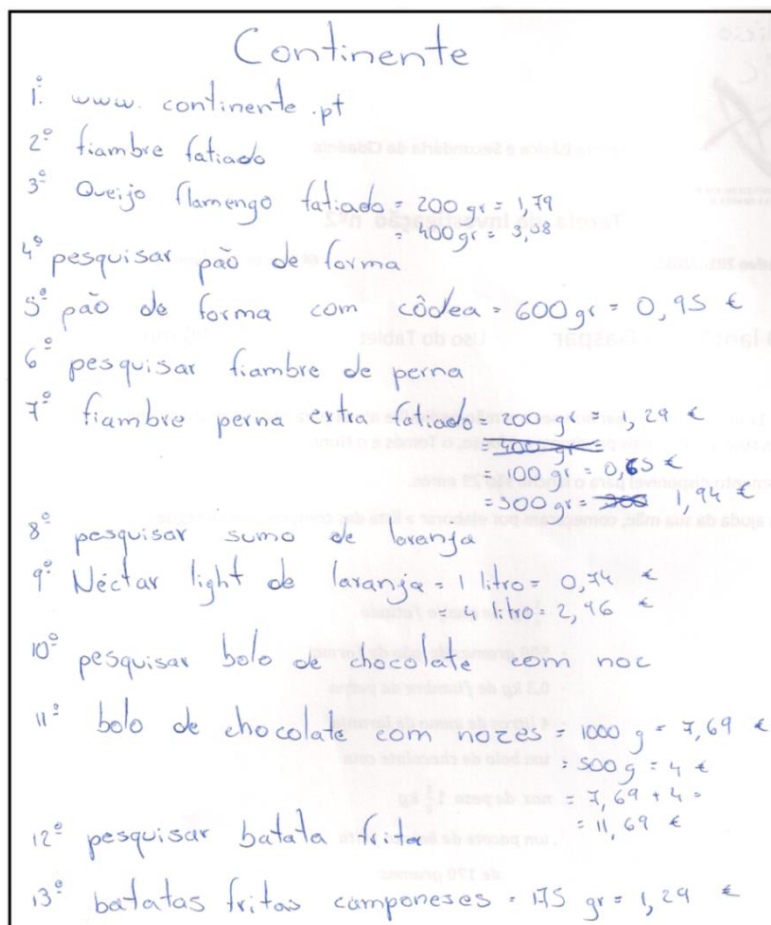 Continente
1º www. continente .pt
2º fiambre fatiado
3º Queijo flamengo fatiado = 200 gr = 1,79
= 400 gr = 3,58
4º pesquisar pão de forma
5º pão de forma com côdea = 600 gr = 0,95 €
6º pesquisar fiambre de perna
7º fiambre perna extra fatiado = 200 gr = 1,29 €
= 400 gr =
= 100 gr = 0,65 €
= 300 gr = 1,94 €
8º pesquisar sumo de laranja
9º Néctar light de laranja = 1 litro = 0,74 €
= 4 litro = 2,96 €
10º pesquisar bolo de chocolate com noc
11º bolo de chocolate com nozes = 1000 g = 7,69 €
= 500 g = 4 €
= 7,69 + 4 =
= 11,69 €
12º pesquisar batata frita
13º batatas fritas camponeses = 175 gr = 1,29 €